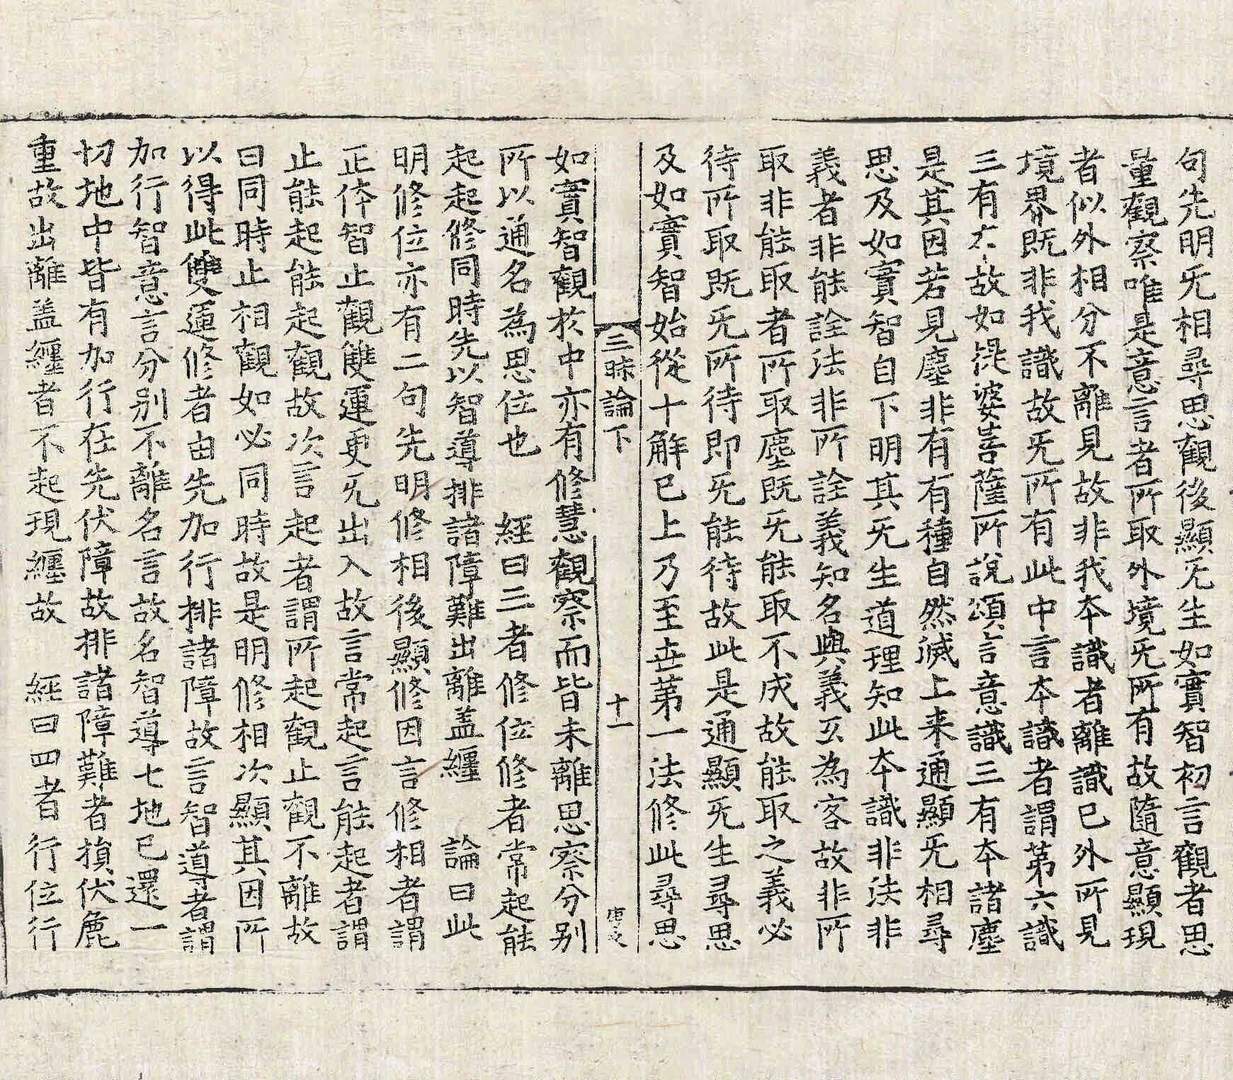 句先明旡相尋思觀後顯旡生如實智初言觀者思
量觀察唯是意言者所取外境旡所有故隨意顯現
者似外相分不離見故非我本識者離識已外所見
境界既非我識故旡所有此中言本識者謂第六識
三有本故如提婆菩薩所說頌言意識三有本諸塵
是其因若見塵非有有種自然滅上来通顯旡相尋
思及如實智自下明其旡生道理知此本識非法非
義者非能詮法非所詮義知名與義互為客故非所
取非能取者所取塵既旡能取不成故能取之義必
待所取既旡所待即旡能待故此是通顯旡生尋思
及如實智始從十解已上乃至世第一法修此尋思
三昧論下 十一
如實智觀於中亦有修慧觀察而皆未離思察分别
所以通名為思位也 經曰三者修位修者常起能
起起修同時先以智導排諸障難出離盖纏 論曰此
明修位亦有二句先明修相後顯修因言修相者謂
正体智止觀雙運更旡出入故言常起言能起者謂
止能起能起觀故次言起者謂所起觀止觀不離故
曰同時止相觀如必同時故是明修相次顯其因所
以得此雙運修者由先加行排諸障故言智導者謂
加行智意言分别不離名言故名智導七地已還一
切地中皆有加行在先伏障故排諸障難者損伏麁
重故出離盖纏者不起現纏故 經曰四者行位行